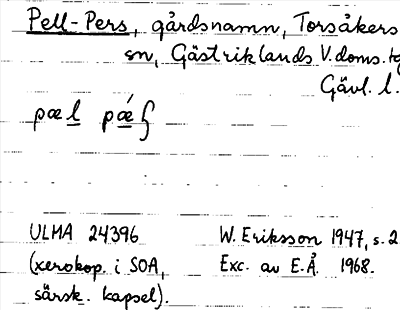 Pell-Pers, gårdsnamn, Torsåkers
sn, Gästriklands V.doms.
Gävl. l.
ULMA 24396
(xerokop. i SOA,
särsk. kapsel).
W. Eriksson 1947, s. 2
Exc. av E.Å. 1968.